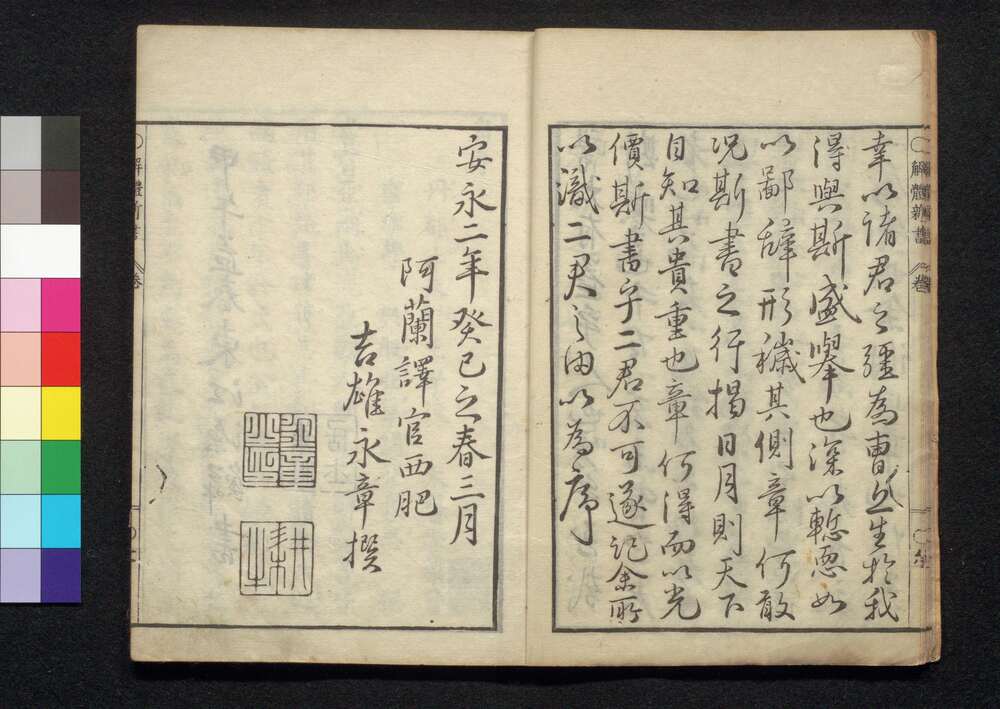 解體新書 卷
幸以諸君之彊為曹丘生於我
得與斯盛擧也深以慙恧如
以鄙辭形穢其側章何敢
况斯書之行揭日月則天下
自知其貴重也章何得而以光
價斯書乎二君不可遂記余所
以識二君之由以為序
安永二年癸巳之春三月
阿蘭譯官西肥
吉雄永章撰
耕牛
解體新書 卷